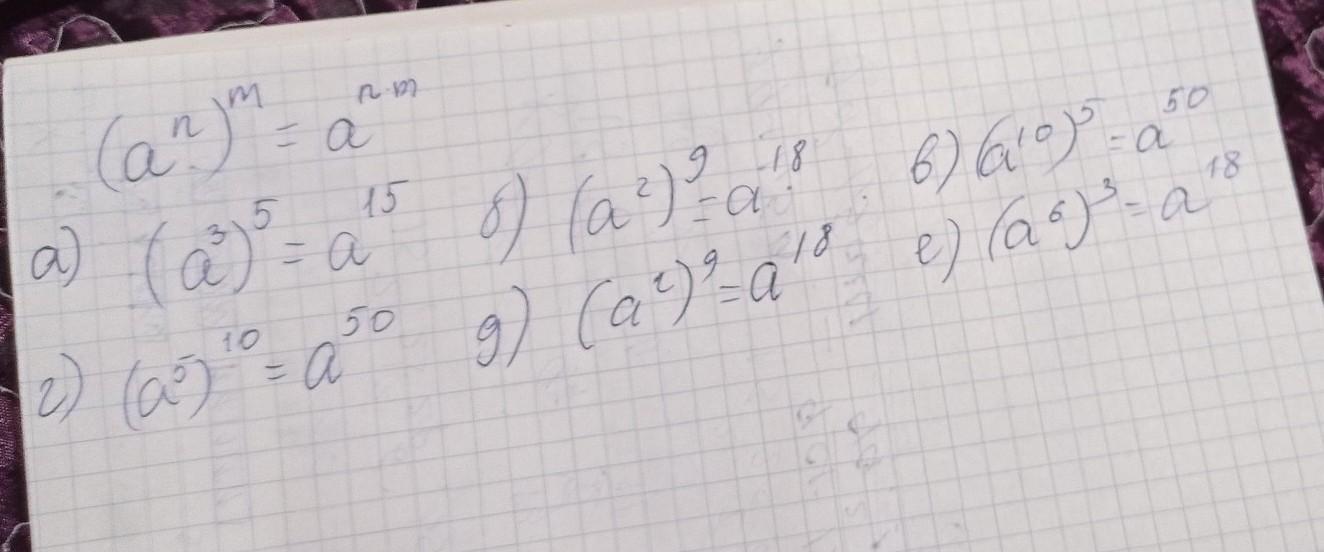 (aⁿ)ᵐ = aⁿ·ᵐ
а) (a³)⁵ = a¹⁵ б) (a²)⁹ = a¹⁸ в) (a¹⁰)⁵ = a⁵⁰
г) (a⁵)¹⁰ = a⁵⁰ д) (a²)⁹ = a¹⁸ е) (a⁶)³ = a¹⁸